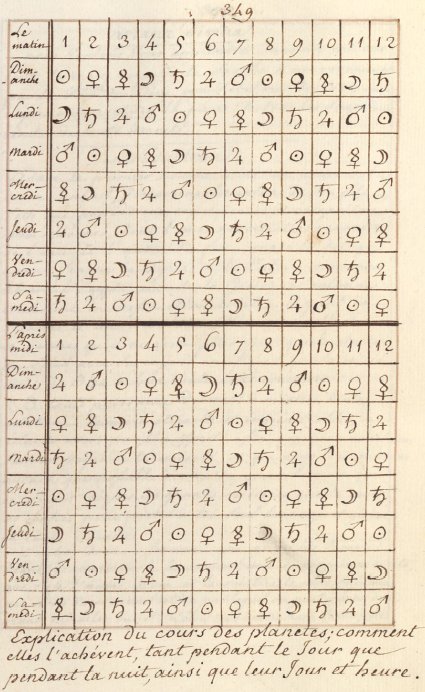 349
Le
matin 1 2 3 4 5 6 7 8 9 10 11 12
Dim-
anche ☉ ♀ ☿ ☽ ♄ ♃ ♂ ☉ ♀ ☿ ☽ ♄
Lundi ☽ ♄ ♃ ♂ ☉ ♀ ☿ ☽ ♄ ♃ ♂ ☉
Mardi ♂ ☉ ♀ ☿ ☽ ♄ ♃ ♂ ☉ ♀ ☿ ☽
Mer-
credi ☿ ☽ ♄ ♃ ♂ ☉ ♀ ☿ ☽ ♄ ♃ ♂
Jeudi ♃ ♂ ☉ ♀ ☿ ☽ ♄ ♃ ♂ ☉ ♀ ☿
Ven-
dredi ♀ ☿ ☽ ♄ ♃ ♂ ☉ ♀ ☿ ☽ ♄ ♃
Sa-
medi ♄ ♃ ♂ ☉ ♀ ☿ ☽ ♄ ♃ ♂ ☉ ♀
L'apris
midi 1 2 3 4 5 6 7 8 9 10 11 12
Dim-
anche ♃ ♂ ☉ ♀ ☿ ☽ ♄ ♃ ♂ ☉ ♀ ☿
Lundi ♀ ☿ ☽ ♄ ♃ ♂ ☉ ♀ ☿ ☽ ♄ ♃
Mardi ♄ ♃ ♂ ☉ ♀ ☿ ☽ ♄ ♃ ♂ ☉ ♀
Mer-
credi ☉ ♀ ☿ ☽ ♄ ♃ ♂ ☉ ♀ ☿ ☽ ♄
Jeudi ☽ ♄ ♃ ♂ ☉ ♀ ☿ ☽ ♄ ♃ ♂ ☉
Ven-
dredi ♂ ☉ ♀ ☿ ☽ ♄ ♃ ♂ ☉ ♀ ☿ ☽
Sa-
medi ☿ ☽ ♄ ♃ ♂ ☉ ♀ ☿ ☽ ♄ ♃ ♂
Explication du cours des planetes; comment
elles l'achévent, tant pendant le Jour que
pendant la nuit, ainsi que leur Jour et heure.